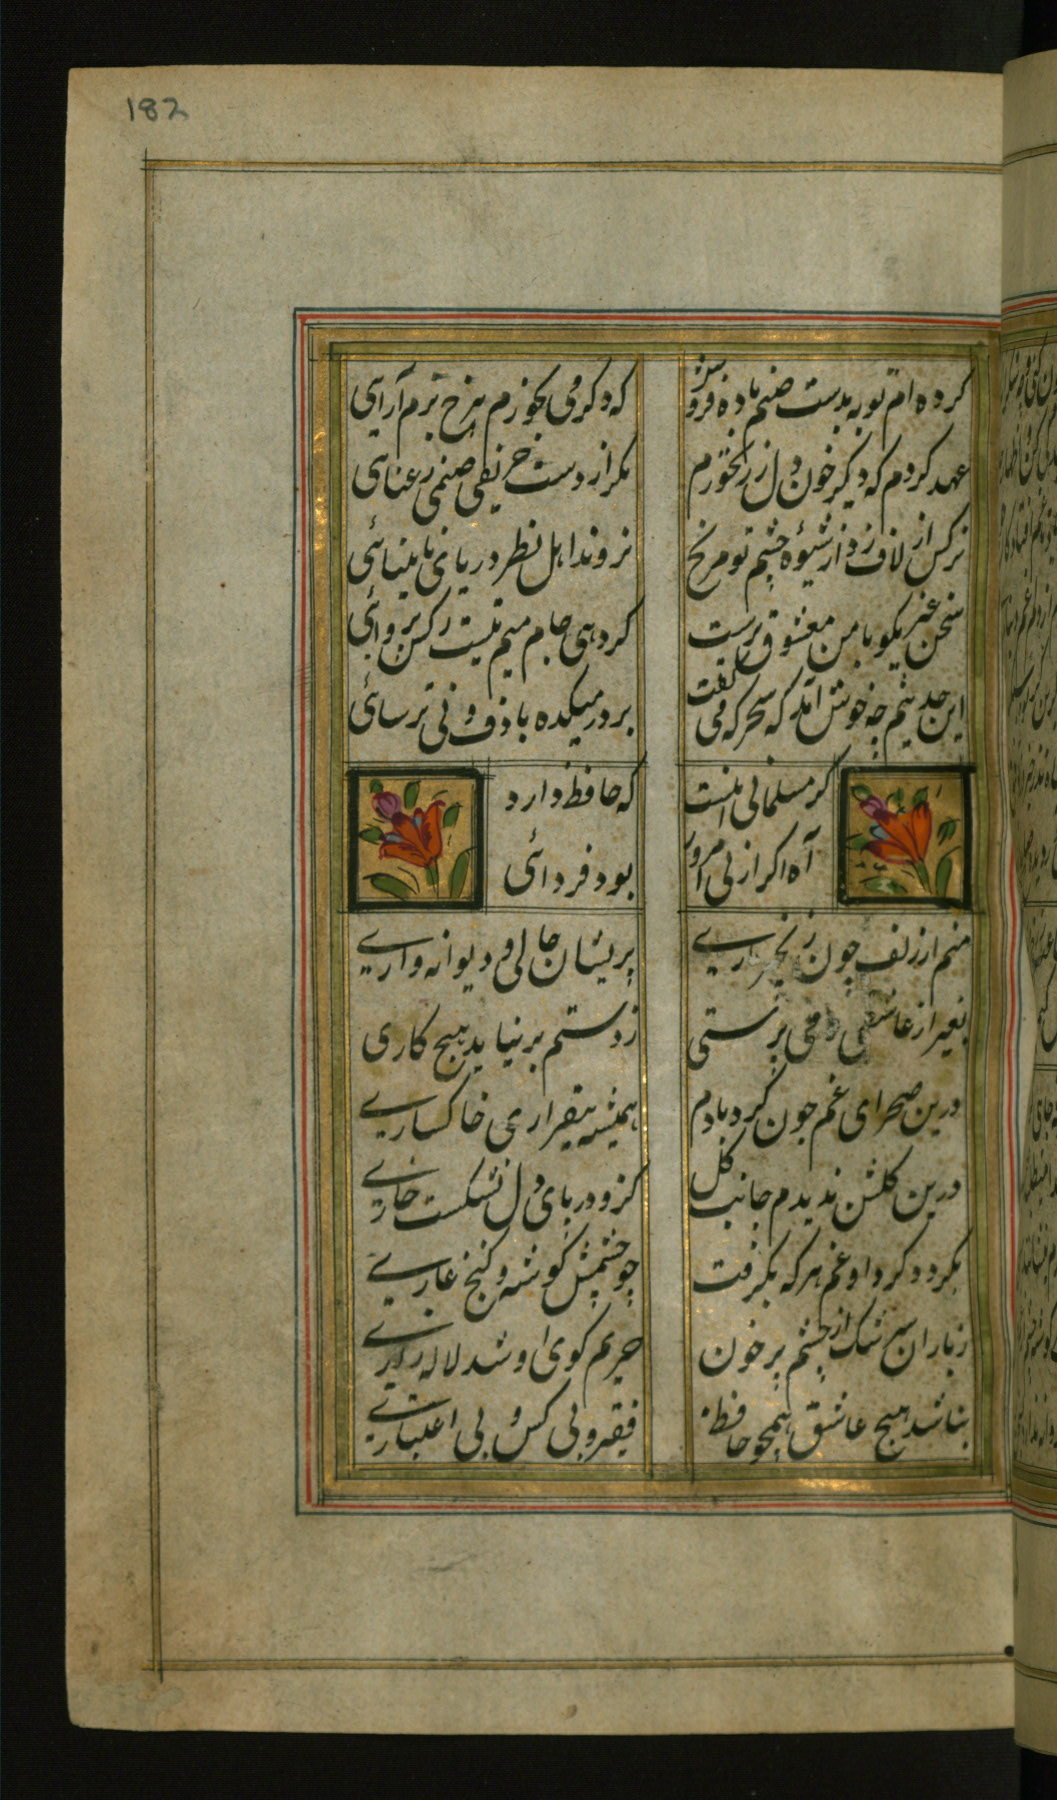 182
کرده ام توبه بدست صنم باده فروش
که دکر می نخورم بی رخ بزم آرایی
عهد کردم که دیکر خون دل رز نخورم
مکر از دست حریفی صنمی رعنایی
نرکس ار لاف زد از شیوه چشم تو مرنج
نروند اهل نظر در پی نابینائی
سخن غیر مکو با من معشوق پرست
کز وی و جام میم نیست بکس پروایی
این حدیثم چه خوش آمد که سحرکه می گفت
بر در میکده با دف و نی ترسائی
کر مسلمانی اینست
که حافظ دارد
آه اکر از پی امروز
بود فردائی
منم از زلف چون زنجیر یاری
پریشان حالی و دیوانه واری
بغیر از عاشقی و می پرستی
زدستم بر نیاید هیچ کاری
درین صحرای غم چون کردبادم
همیشه بیقراری خاکساری
درین کلشن ندیدم جانب کل
کزو در پای دل نشکست خاری
نکردد کرد او غم هر که بکرفت
چو چشمش کوشه و کنج غاری
زباران سرشک از چشم پر خون
حریم کوی او شد لاله زاری
نباشد هیچ عاشق همچو حافظ
فقیر و بی کس و بی اعتباری